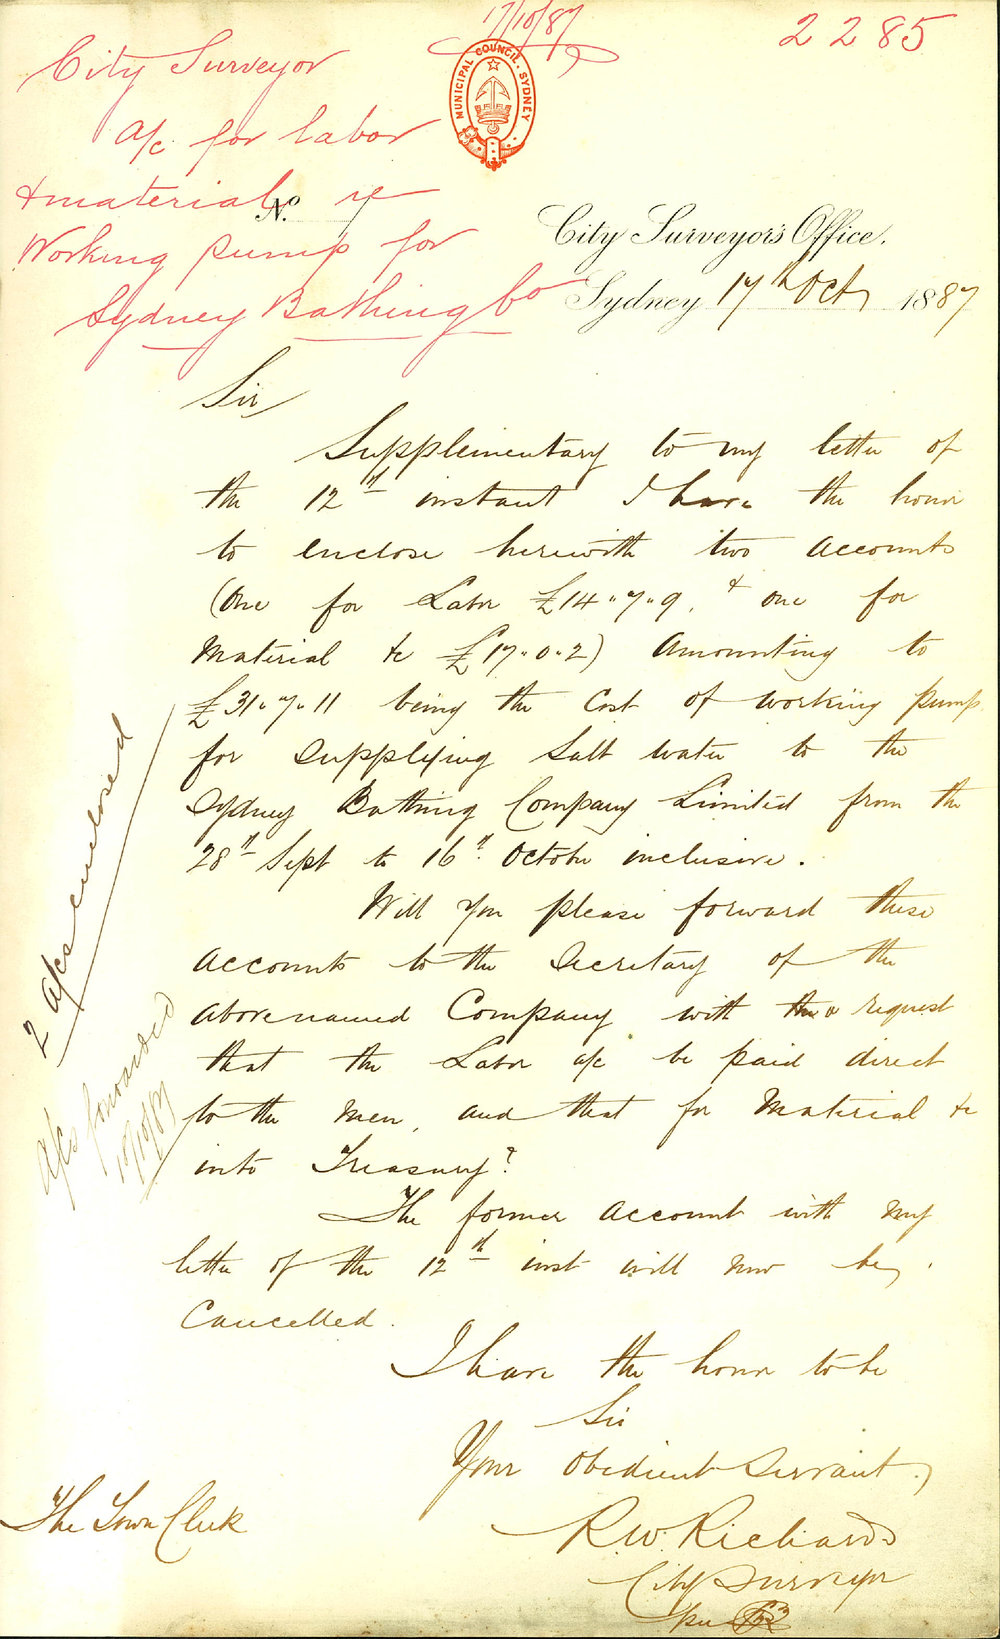 17/10/87
2285
City Surveyor
a/c for labor
& material re
Working pump for
Sydney Bathing Co
MUNICIPAL COUNCIL · SYDNEY
No.
City Surveyor's Office.
Sydney 17th Oct 1887
Sir
Supplementary to my letter of
the 12th instant I have the honor
to enclose herewith two accounts
(One for Labor £14"7"9, & one for
Material &c £17"0"2) amounting to
£31"7"11 being the Cost of working pump
for supplying Salt water to the
Sydney Bathing Company Limited from the
28th Sept to 16th October inclusive.
Will you please forward these
accounts to the Secretary of the
abovenamed Company with a request
that the Labor a/c be paid direct
to the Men, and that for Material &c
into Treasury?
The former account with my
letter of the 12th inst will now be,
Cancelled.
I have the honor to be
Sir
Your obedient Servant,
R.W. Richards
City Surveyor
per
The Town Clerk
2 a/cs enclosed
A/cs forwarded
18/10/87